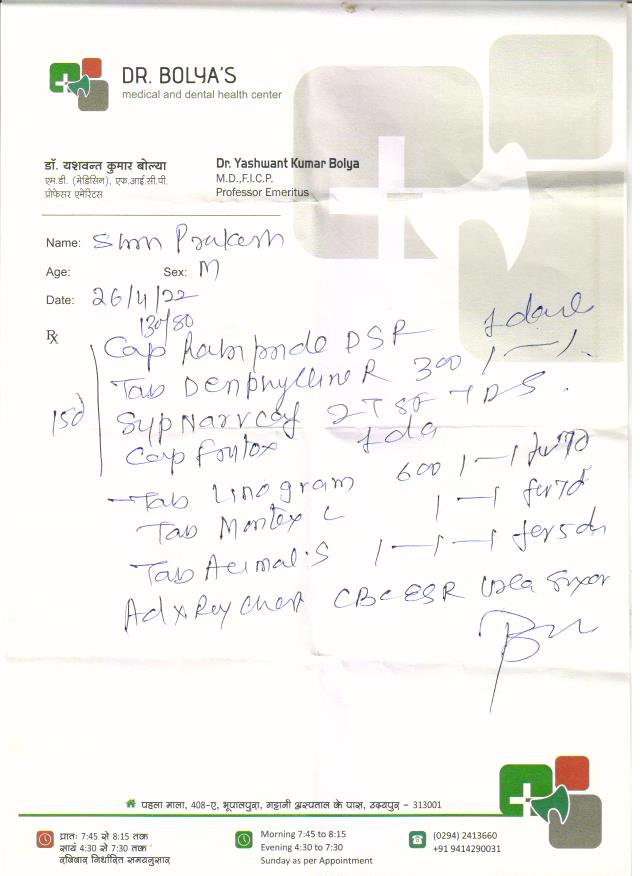 DR. BOLYA'S
medical and dental health center
डॉ. यशवन्त कुमार बोल्या
एम.डी. (मेडिसिन), एफ.आई.सी.पी.
प्रोफेसर एमेरिटस
Dr. Yashwant Kumar Bolya
M.D.,F.I.C.P.
Professor Emeritus
Name: Prakash
Age: Sex: M
Date: 26/4/22
130/80
Rx
Cap DSR 1 daily
Tab R 300 1—1
15d
Syp 2TSF TDS
Cap 1 da
Tab 600 1—1 for 7d
Tab Montex L 1—1 for 7d
Tab 1—1—1 for 5 d
Ad x Ray Chest CBC ESR Urea
पहला माला, 408-ए, भूपालपुरा, गट्टानी अस्पताल के पास, उदयपुर - 313001
प्रातः 7:45 से 8:15 तक
सायं 4:30 से 7:30 तक
रविवार निर्धारित समयनुसार
Morning 7:45 to 8:15
Evening 4:30 to 7:30
Sunday as per Appointment
(0294) 2413660
+91 9414290031